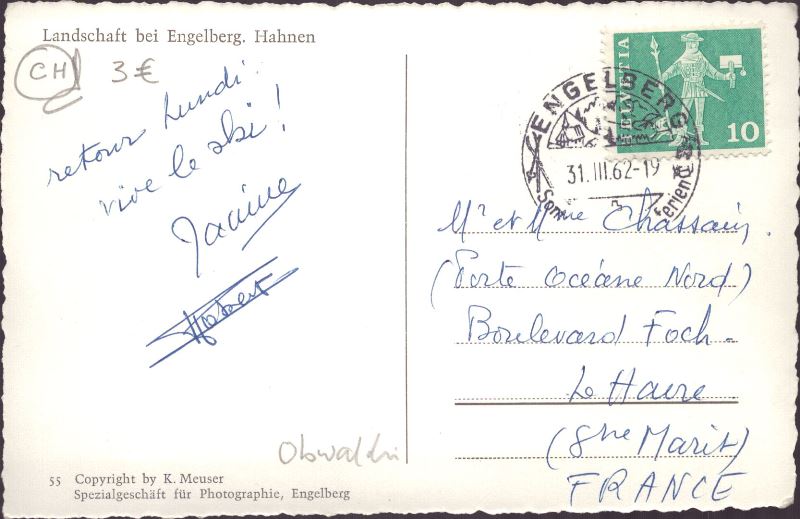 Landschaft bei Engelberg. Hahnen
CH 3 €
retour Lundi.
vive le ski !
Janine
Robert
Obwalden
55 Copyright by K. Meuser
Spezialgeschäft für Photographie, Engelberg
HELVETIA
10
ENGELBERG
31.III.62-19
Mr et Mme Chassain.
(Porte Océane Nord)
Boulevard Foch.
Le Havre
(Sne Marit)
FRANCE